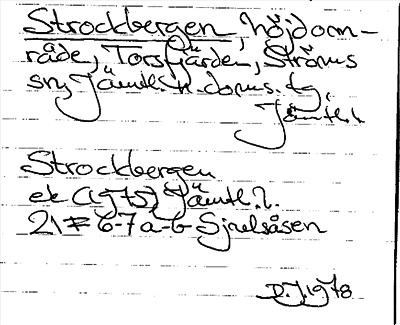 Strockbergen, höjdom-
råde, Torsfjärden, Ströms
sn, Jämtl. n. doms. dg,
Jämtl. l.
Strockbergen
ek (1975) Jämtl. l.
21 F 6-7 a-b Sjaelsåsen
D.J. 1978